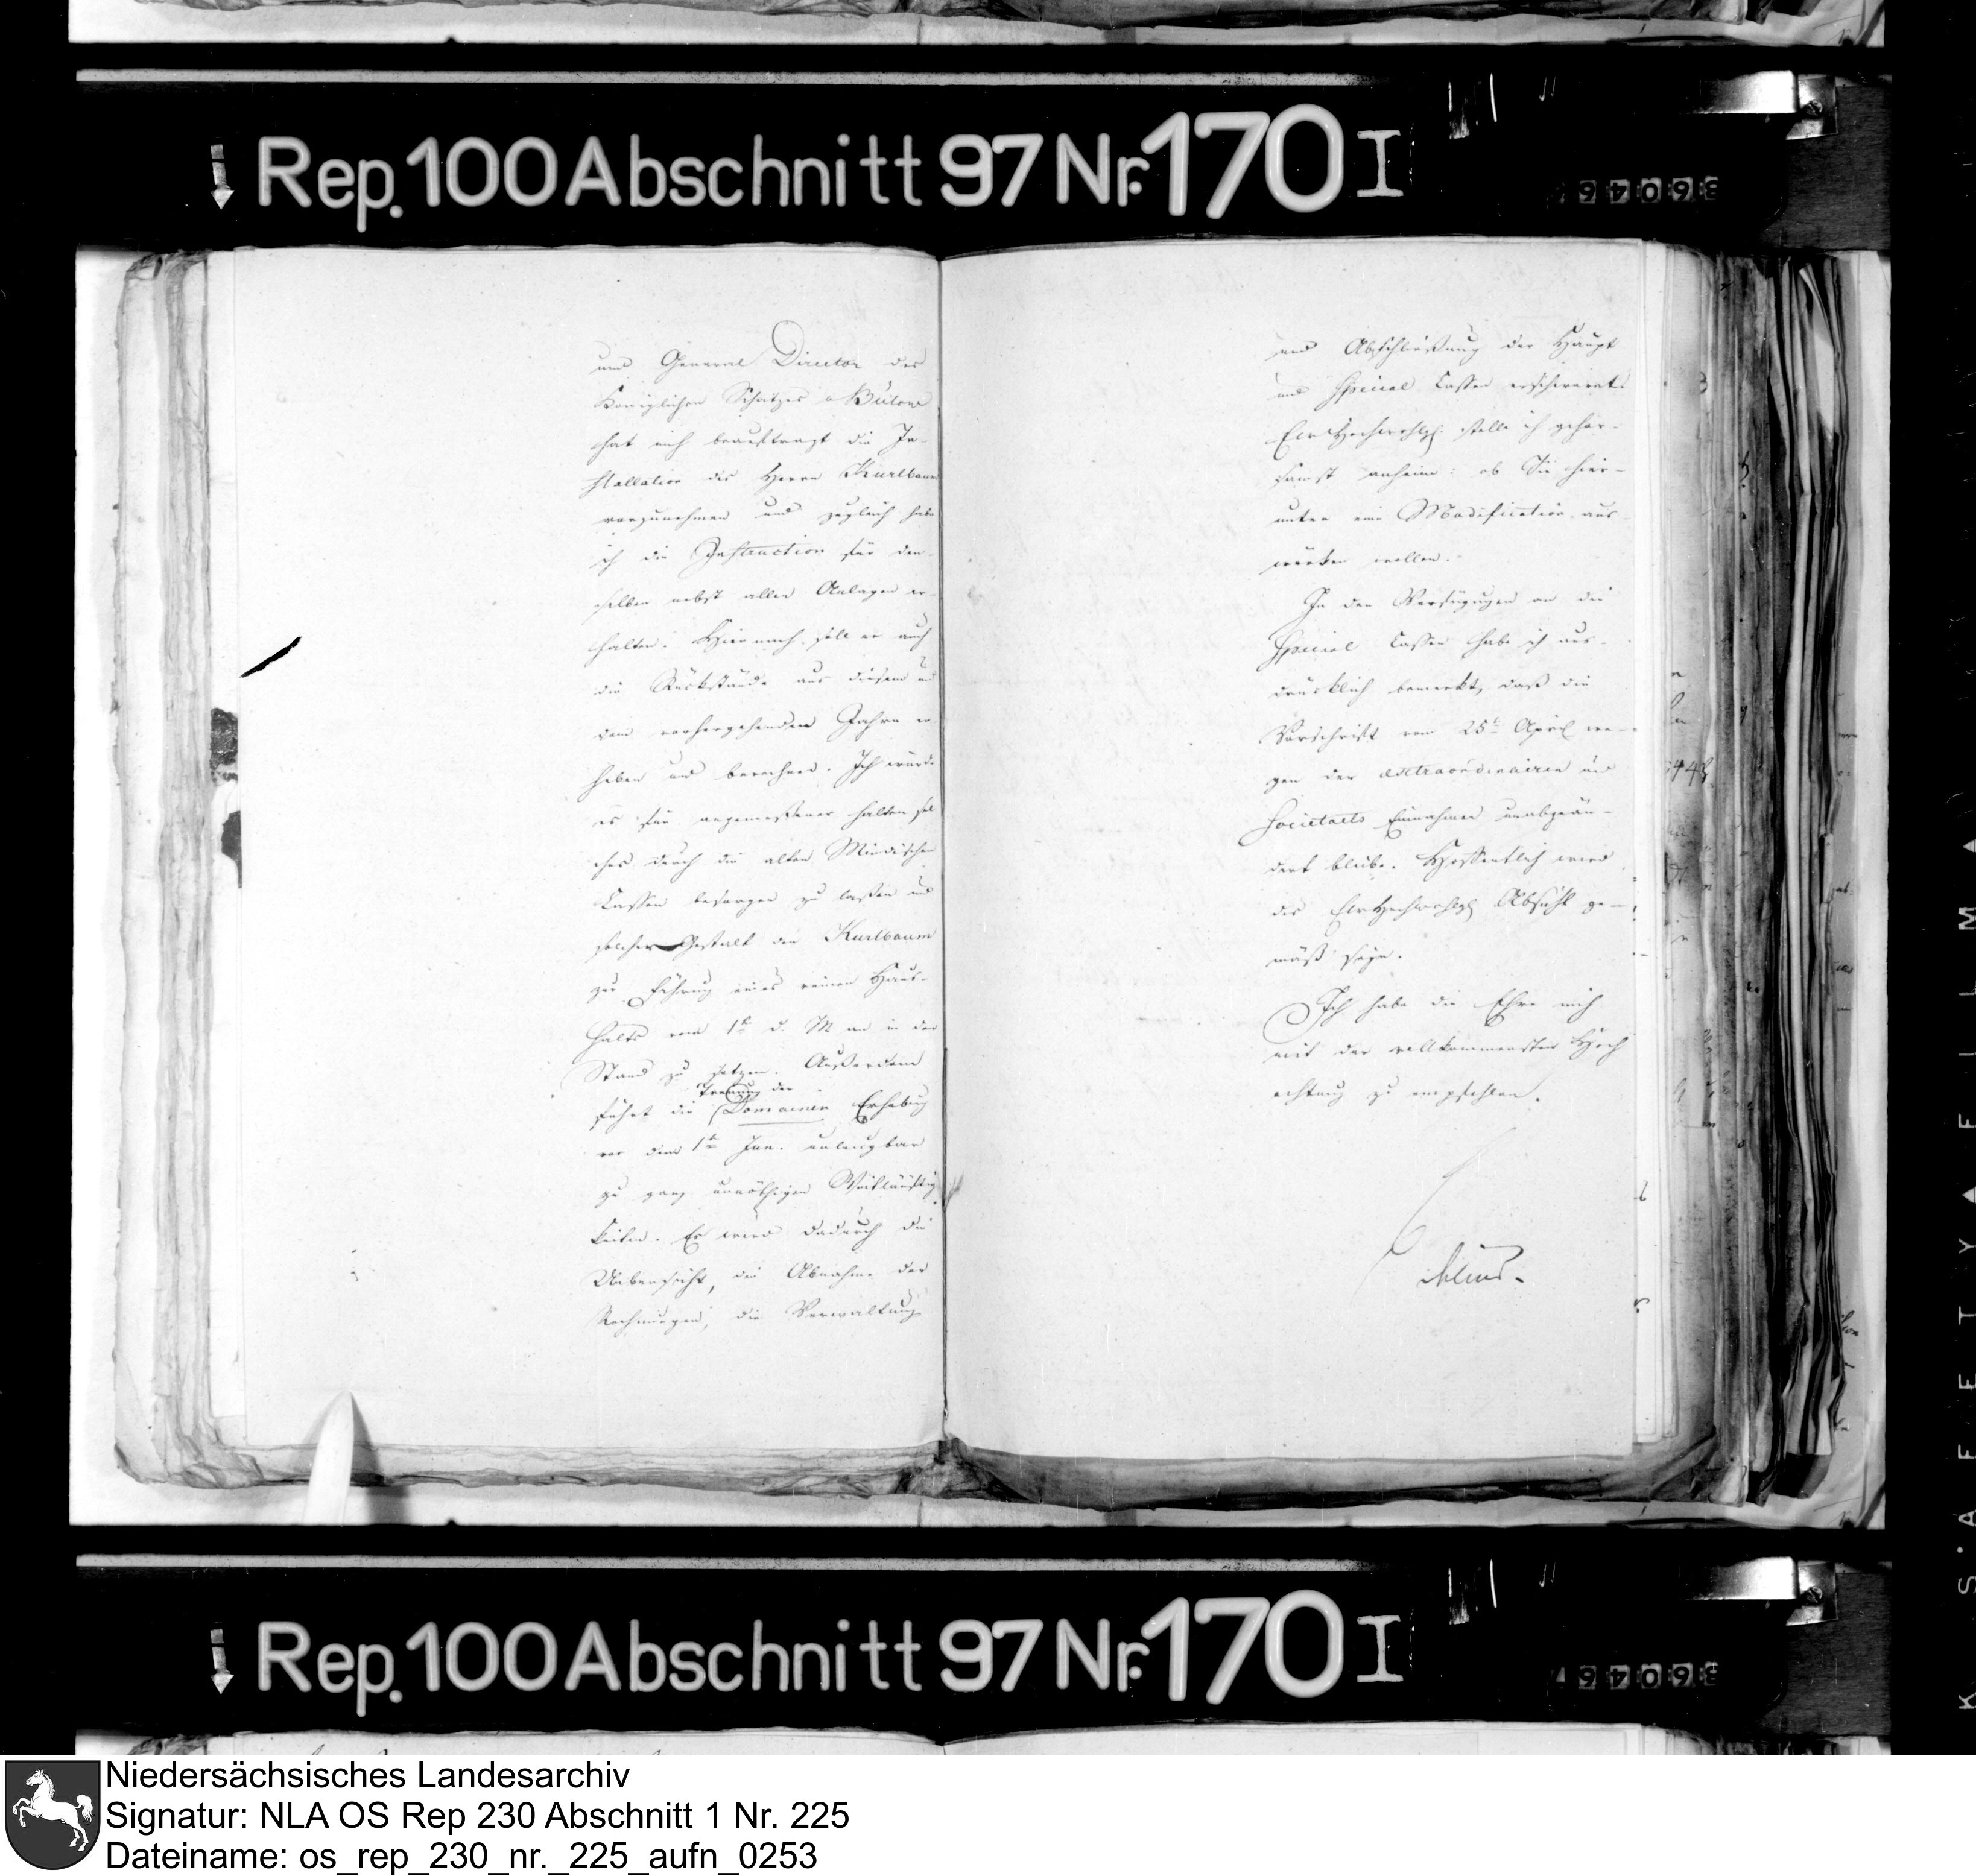 Rep. 100 Abschnitt 97 Nr. 170 I
360467
und General Director des
Königlichen Schatzes v Bülow
hat mich beauftragt die In-
stallation des Herrn Kurlbaum
vorzunehmen und zugleich habe
ich die Instruction für den-
selben nebst allen Anlagen er-
halten. Hiernach soll er auch
die Rückstände aus diesem und
dem vorhergehenden Jahre er
heben und berechnen. Ich würde
es für angemeßener halten sol
ches durch die alten Mindischen
Cassen besorgen zu laßen und
solcher Gestalt den Kurlbaum
zur Führung eines reinen Haus-
halts vom 1ten d. M. an in den
Stand zu setzen. Außerdem
Trennung der
führt die Domainen Erhebung
vor dem 1ten Jan. unleugbar
zu ganz unnöthigen Weitläuftig
keiten. Es wird dadurch die
Uebersicht, die Abnahme der
Rechnungen, die Verwaltung
und Abschließung der Haupt
und Special Cassen erschwert.
Ew Hochwohlg. stelle ich gehor-
samst anheim: ob Sie hier-
unter eine Modification aus-
wirken wollen.
In den Verfügungen an die
Special Cassen habe ich aus-
drücklich bemerkt, daß die
Vorschrift vom 25t April we-
gen der extraordinairen und
Societaets Einnahmen unabgeän-
dert bleibe. Hoffentlich wird
dies Ew Hochwohlg Absicht ge-
mäß seyn.
Ich habe die Ehre mich
mit der vollkommensten Hoch
achtung zu empfehlen.
Rep. 100 Abschnitt 97 Nr. 170 I
360467
Niedersächsisches Landesarchiv
Signatur: NLA OS Rep 230 Abschnitt 1 Nr. 225
Dateiname: os_rep_230_nr._225_aufn_0253